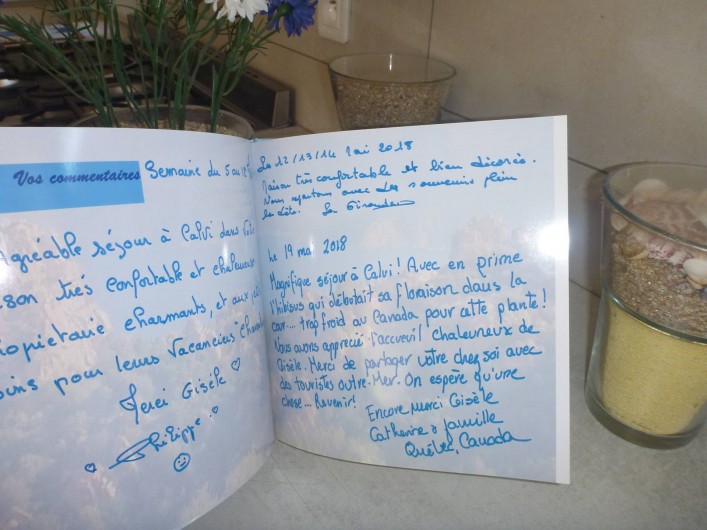 Vos commentaires
Semaine du 5 au 12
Agréable séjour à Calvi dans
très confortable et chaleureuse
propiétaire charmants, et aux
soins pour leurs Vacanciers
Merci Gisèle ♡
♡ Philippe
Le 12/13/14 Mai 2018
Maison très confortable et bien décorée.
Nous repartons avec des souvenirs plein
la tête.
Le 19 mai 2018
Magnifique séjour à Calvi! Avec en prime
l'hibisus qui débutait sa floraison dans la
cour... trop froid au Canada pour cette plante!
Nous avons apprécié l'accueuil chaleureux de
Gisèle. Merci de partager votre chez soi avec
des touristes outre-Mer. On espère qu'une
chose... Revenir!
Encore merci Gisèle
Catherine & famille
Québec, Canada